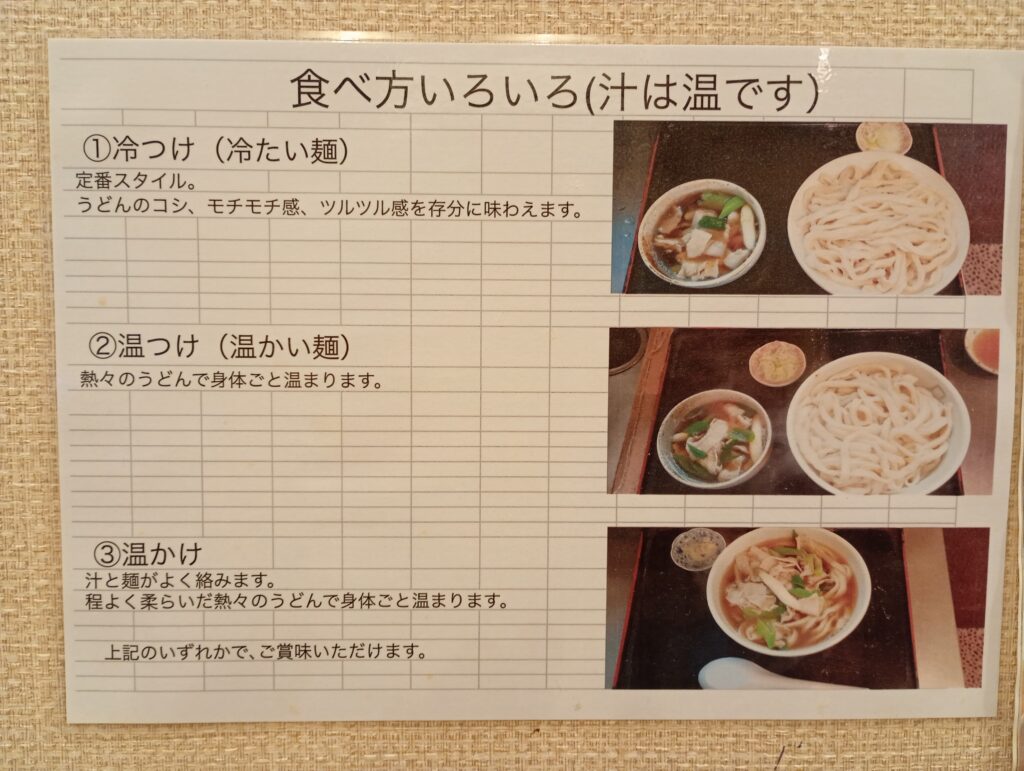 食べ方いろいろ(汁は温です)
①冷つけ（冷たい麺）
定番スタイル。
うどんのコシ、モチモチ感、ツルツル感を存分に味わえます。
②温つけ（温かい麺）
熱々のうどんで身体ごと温まります。
③温かけ
汁と麺がよく絡みます。
程よく柔らいだ熱々のうどんで身体ごと温まります。
上記のいずれかで、ご賞味いただけます。